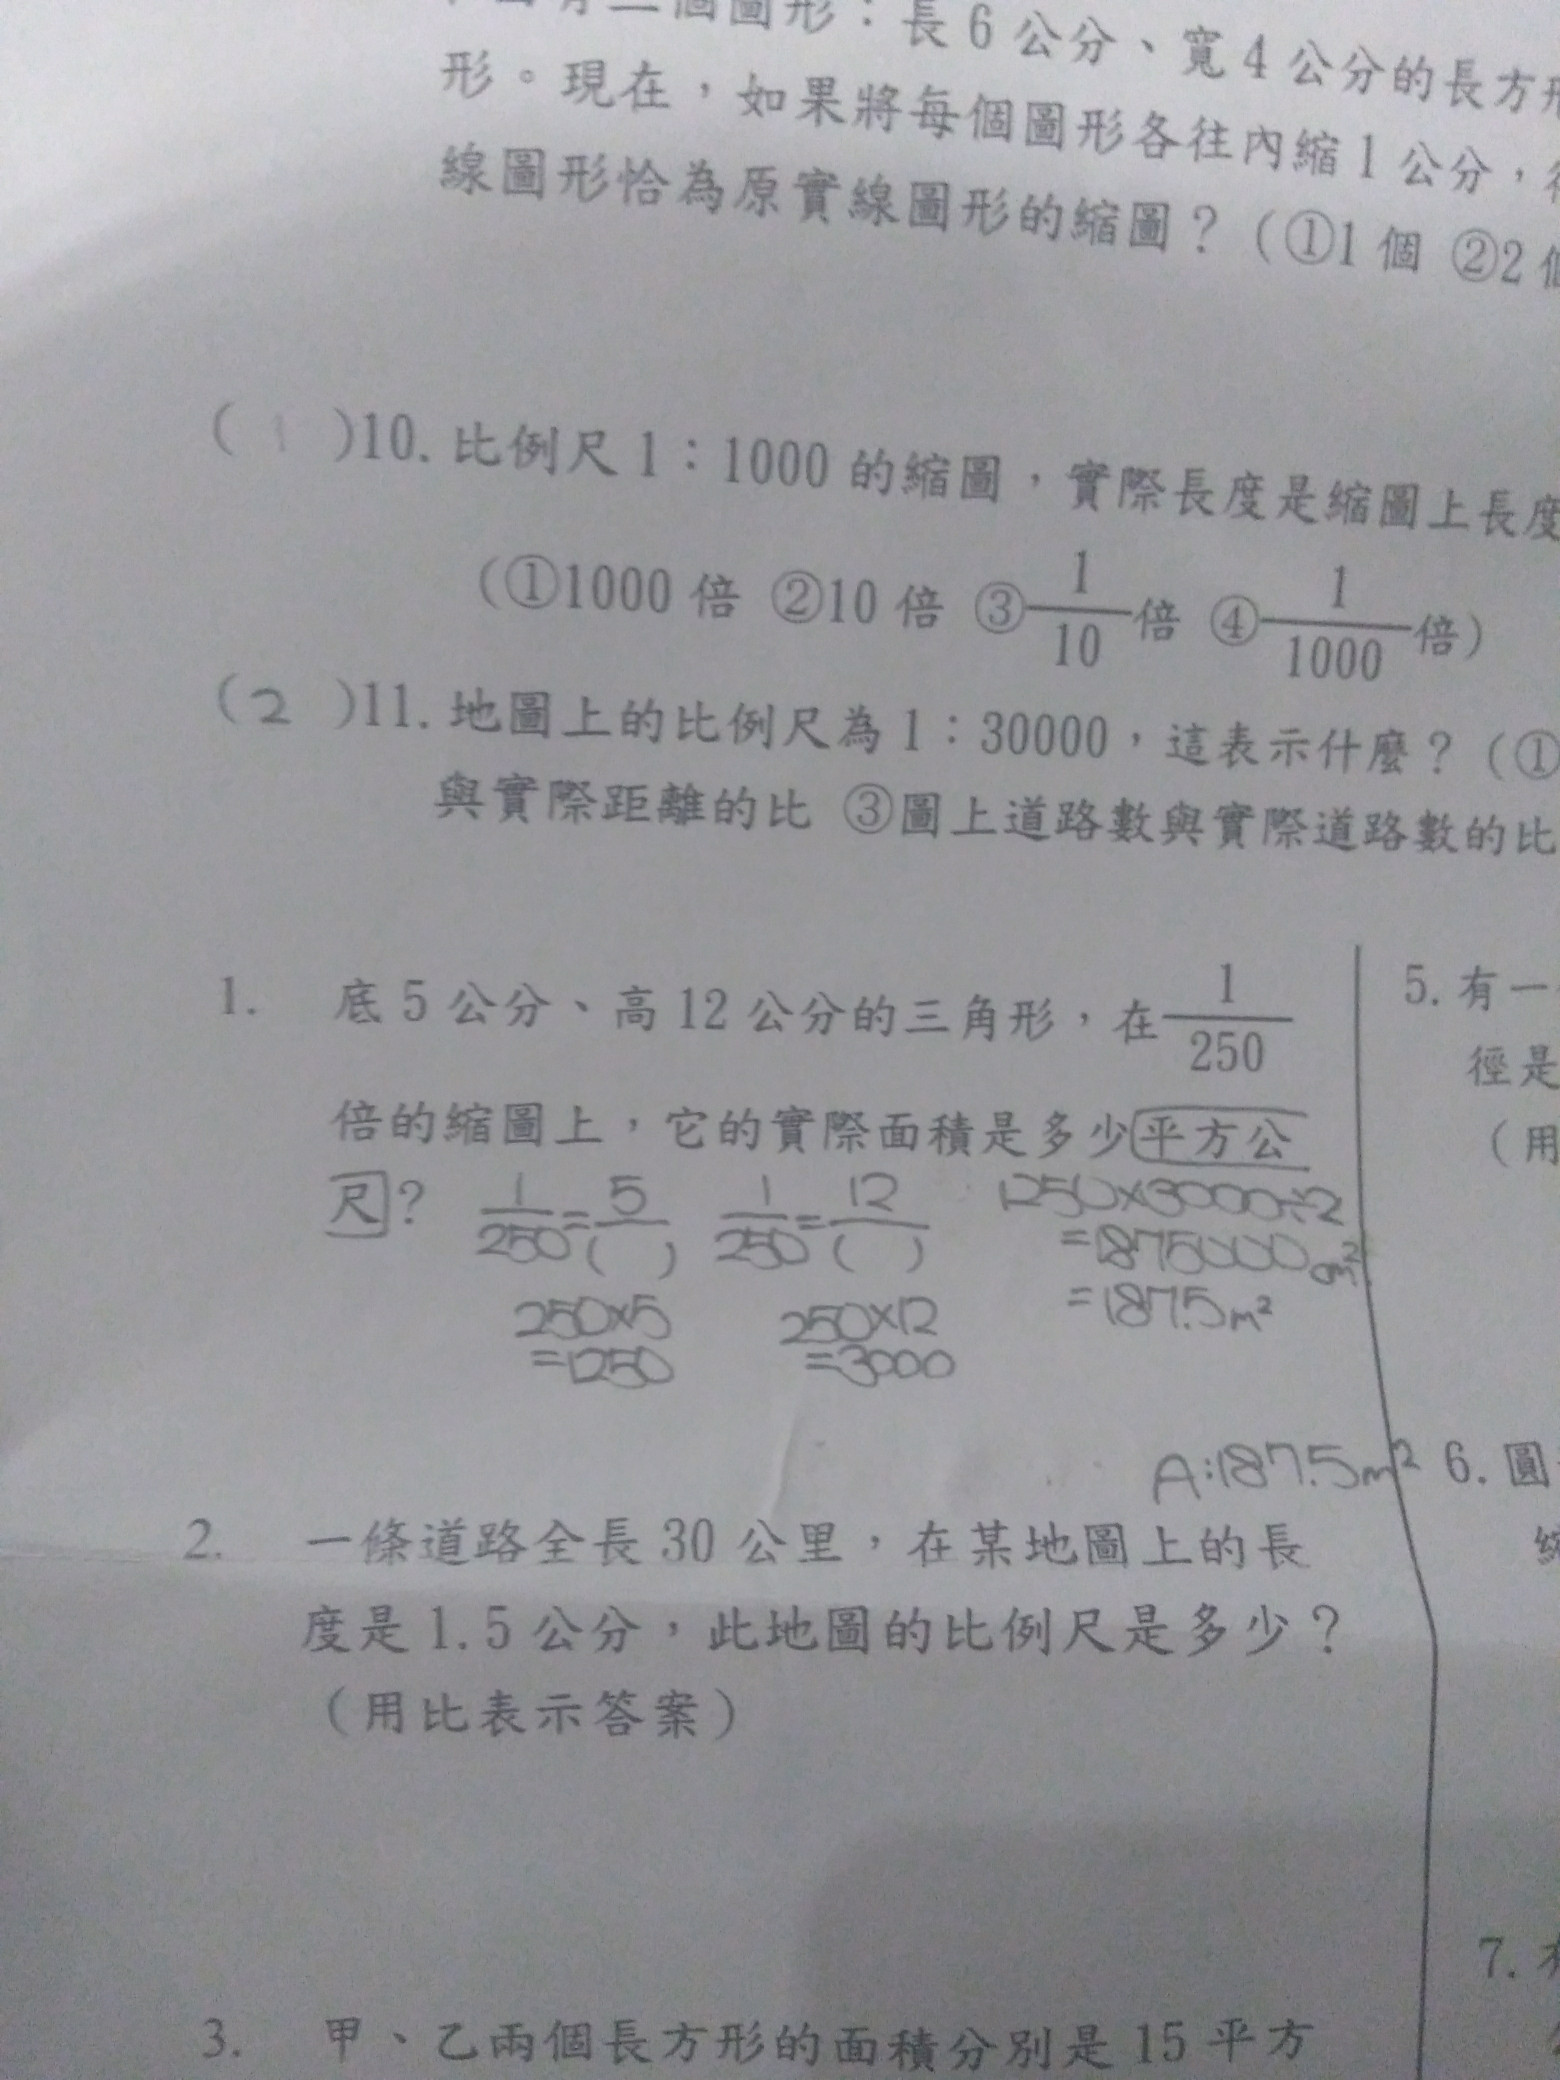 個圖形：長6公分、寬4公分的長方形
形。現在，如果將每個圖形各往內縮1公分，
線圖形恰為原實線圖形的縮圖？（①1個 ②2個
( 1 )10. 比例尺1：1000的縮圖，實際長度是縮圖上長度
（①1000倍 ②10倍 ③1/10倍 ④1/1000倍）
( 2 )11. 地圖上的比例尺為1：30000，這表示什麼？（①
與實際距離的比 ③圖上道路數與實際道路數的比
1. 底5公分、高12公分的三角形，在1/250
倍的縮圖上，它的實際面積是多少平方公
尺？
1/250=5/( ) 1/250=12/( )
250×5
=1250
250×12
=3000
1250×3000÷2
=1875000cm²
=187.5m²
A:187.5m²
2. 一條道路全長30公里，在某地圖上的長
度是1.5公分，此地圖的比例尺是多少？
（用比表示答案）
3. 甲、乙兩個長方形的面積分別是15平方
5. 有一
徑是
（用
6. 圓
7.